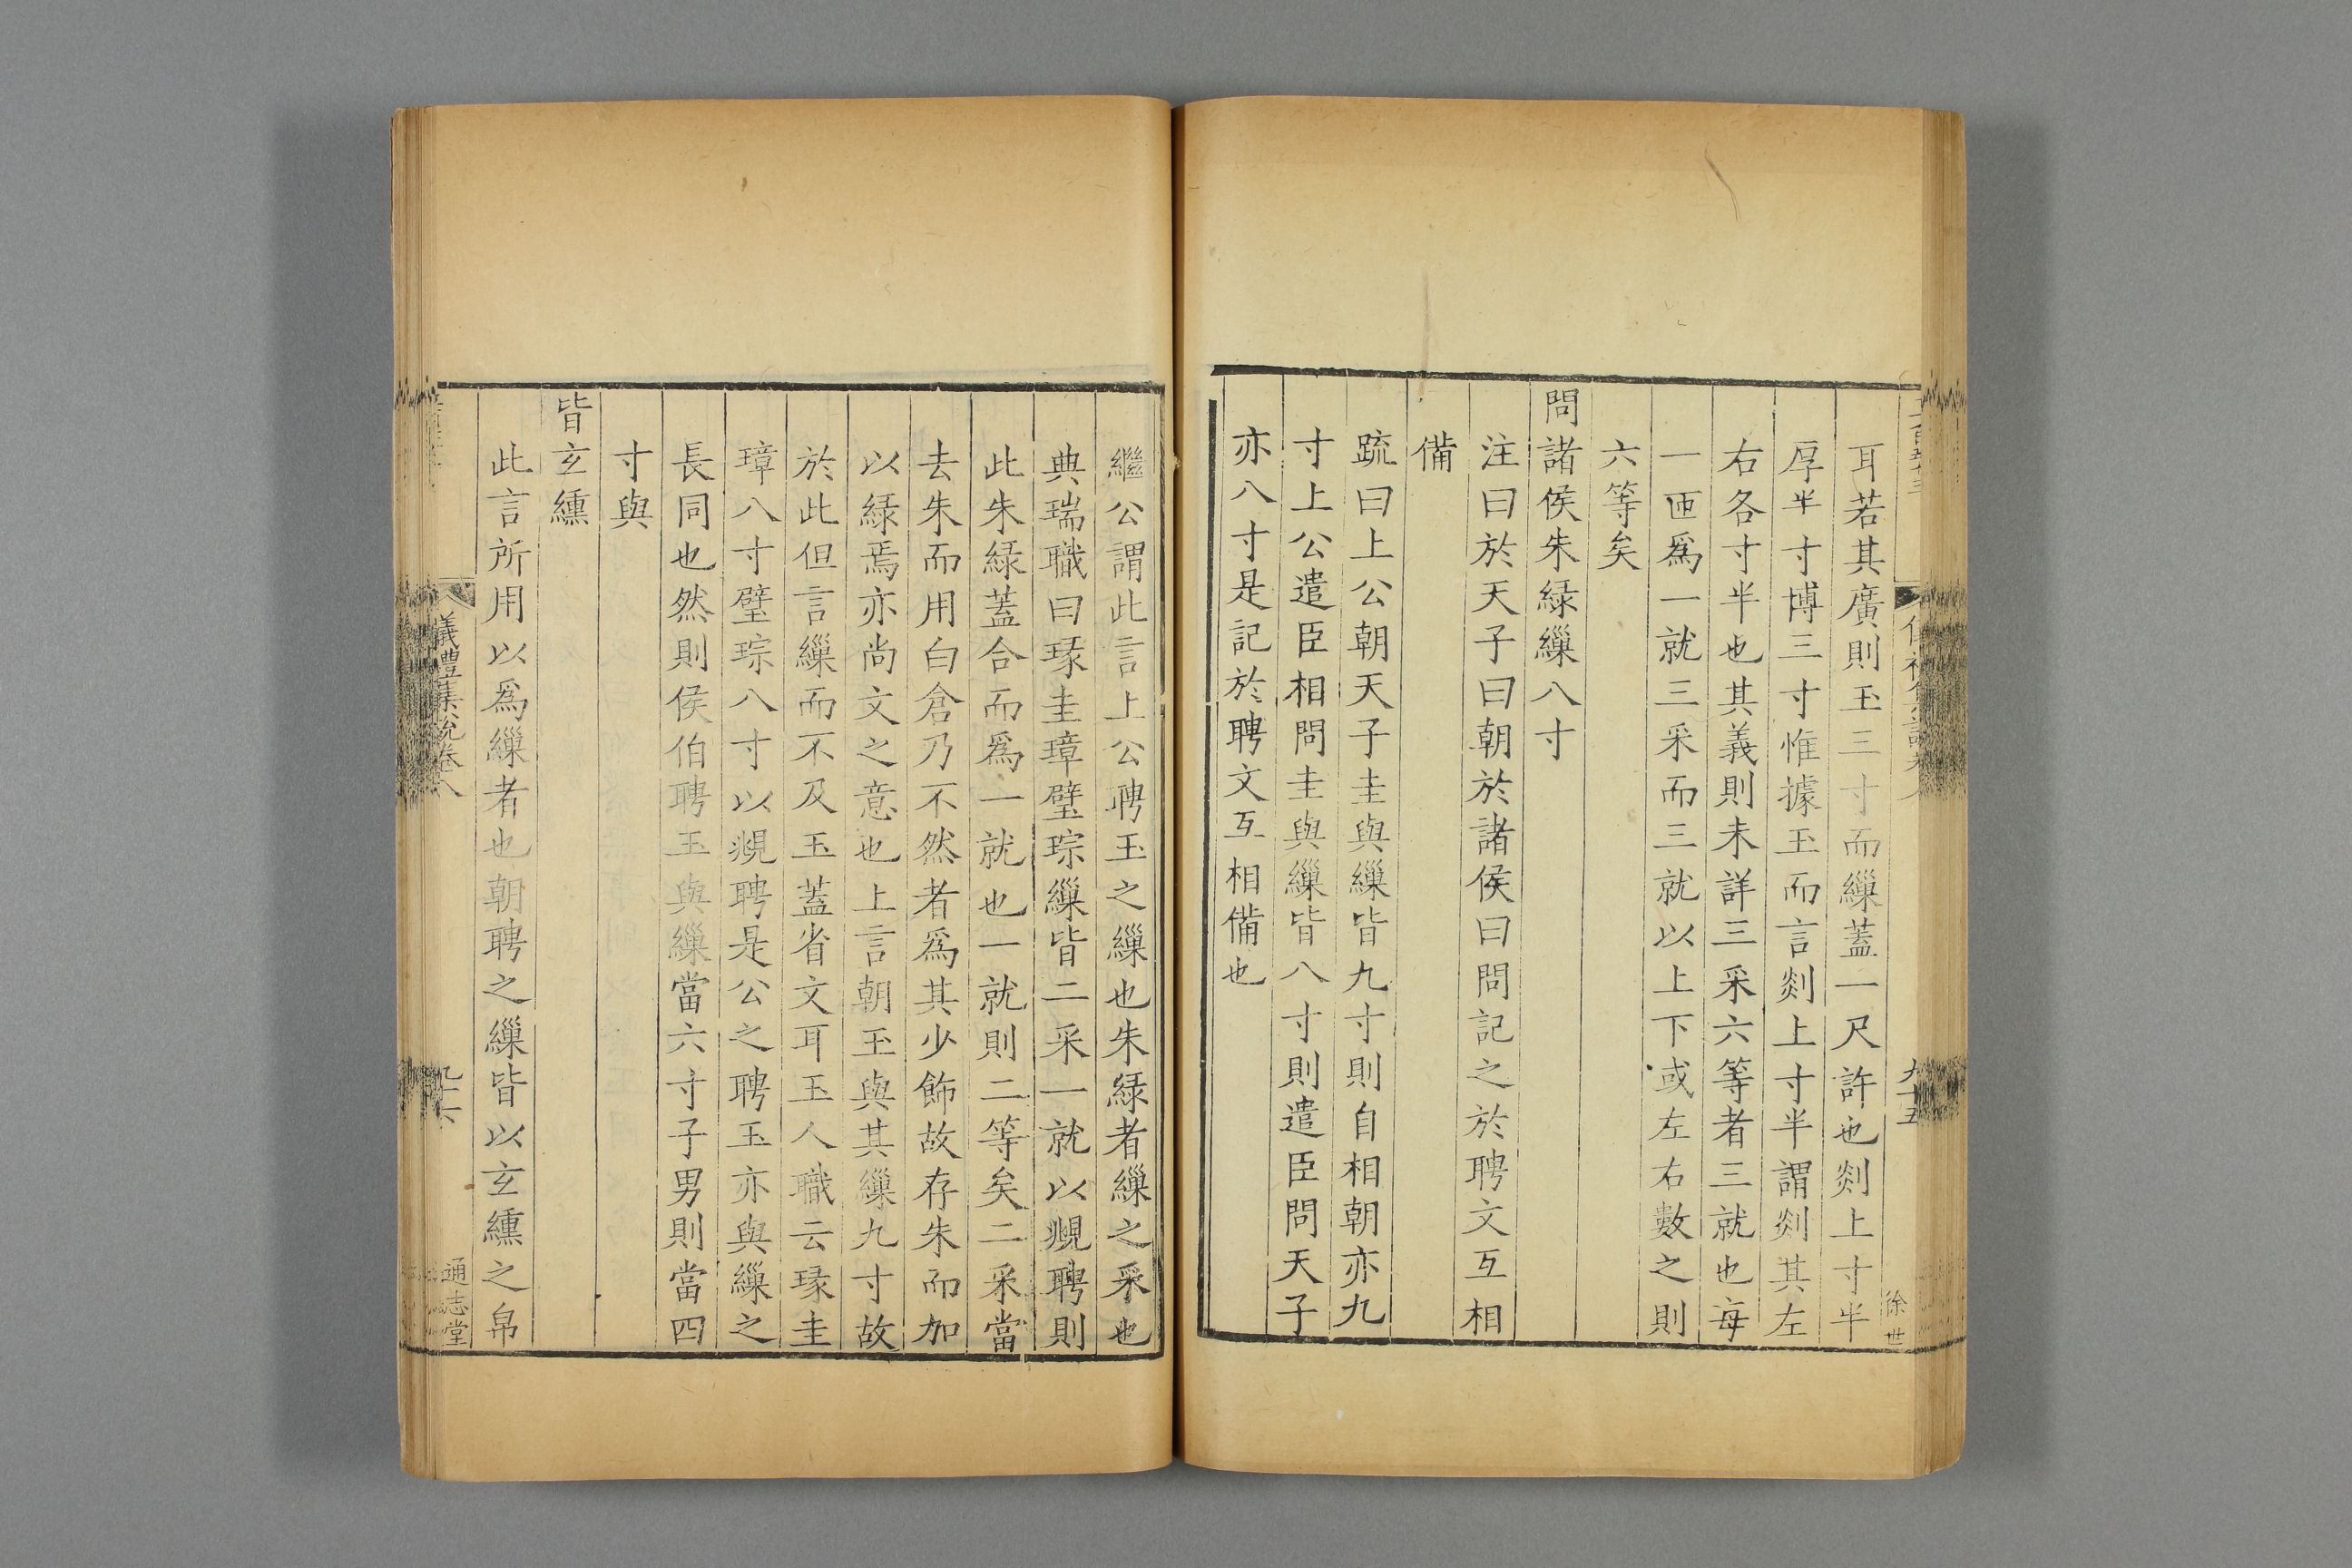 耳若其廣則玉三寸而繅蓋一尺許也剡上寸半
厚半寸博三寸惟據玉而言剡上寸半謂剡其左
右各寸半也其義則未詳三采六等者三就也每
一匝爲一就三采而三就以上下或左右數之則
六等矣
問諸侯朱緑繅八寸
注曰於天子曰朝於諸侯曰問記之於聘文互相
備
疏曰上公朝天子圭與繅皆九寸則自相朝亦九
寸上公遣臣相問圭與繅皆八寸則遣臣問天子
亦八寸是記於聘文互相備也
九十五
徐世
繼公謂此言上公聘玉之繅也朱緑者繅之采也
典瑞職曰瑑圭璋璧琮繅皆二采一就以覜聘則
此朱緑蓋合而爲一就也一就則二等矣二采當
去朱而用白倉乃不然者爲其少飾故存朱而加
以緑焉亦尚文之意也上言朝玉與其繅九寸故
於此但言繅而不及玉蓋省文耳玉人職云瑑圭
璋八寸璧琮八寸以覜聘是公之聘玉亦與繅之
長同也然則侯伯聘玉與繅當六寸子男則當四
寸與
皆玄纁
此言所用以爲繅者也朝聘之繅皆以玄纁之帛
儀禮集說卷八
通志堂